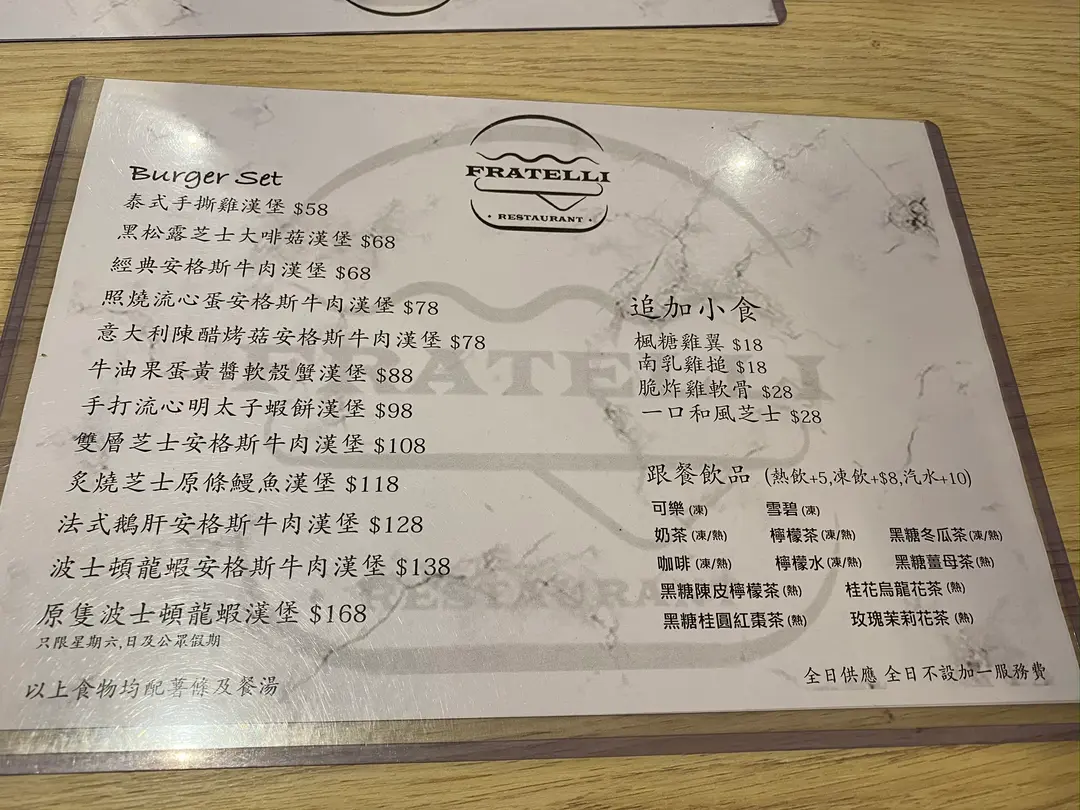 FRATELLI
RESTAURANT
Burger Set
泰式手撕雞漢堡 $58
黑松露芝士大啡菇漢堡 $68
經典安格斯牛肉漢堡 $68
照燒流心蛋安格斯牛肉漢堡 $78
意大利陳醋烤菇安格斯牛肉漢堡 $78
牛油果蛋黃醬軟殼蟹漢堡 $88
手打流心明太子蝦餅漢堡 $98
雙層芝士安格斯牛肉漢堡 $108
炙燒芝士原條鰻魚漢堡 $118
法式鵝肝安格斯牛肉漢堡 $128
波士頓龍蝦安格斯牛肉漢堡 $138
原隻波士頓龍蝦漢堡 $168
只限星期六,日及公眾假期
以上食物均配薯條及餐湯
追加小食
楓糖雞翼 $18
南乳雞搥 $18
脆炸雞軟骨 $28
一口和風芝士 $28
跟餐飲品 (熱飲+5,凍飲+$8,汽水+10)
可樂 (凍) 雪碧 (凍)
奶茶 (凍/熱) 檸檬茶 (凍/熱) 黑糖冬瓜茶 (凍/熱)
咖啡 (凍/熱) 檸檬水 (凍/熱) 黑糖薑母茶 (熱)
黑糖陳皮檸檬茶 (熱) 桂花烏龍花茶 (熱)
黑糖桂圓紅棗茶 (熱) 玫瑰茉莉花茶 (熱)
全日供應 全日不設加一服務費
FRATELLI
RESTAURANT